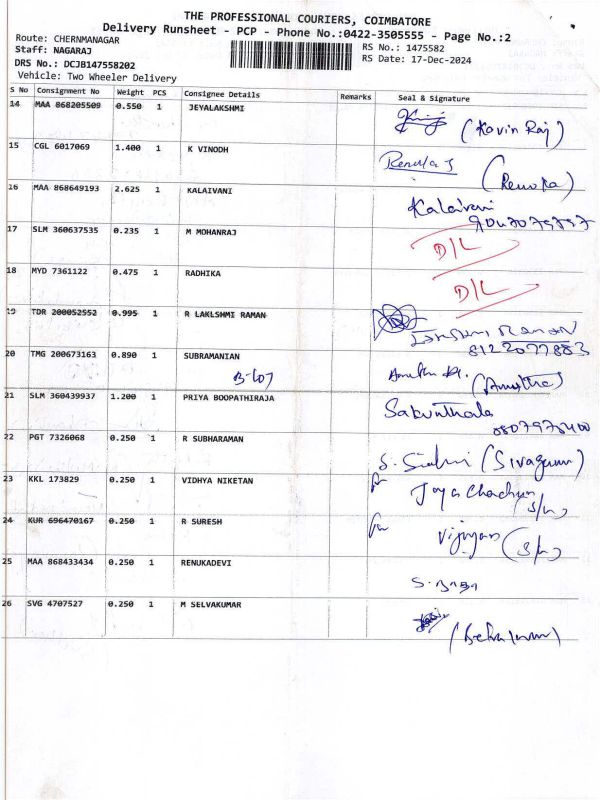 THE PROFESSIONAL COURIERS, COIMBATORE
Delivery Runsheet - PCP - Phone No.:0422-3505555 - Page No.:2
Route: CHERNMANAGAR
RS No.: 1475582
Staff: NAGARAJ
RS Date: 17-Dec-2024
DRS No.: DCJB147558202
Vehicle: Two Wheeler Delivery
S No Consignment No Weight PCS Consignee Details Remarks Seal & Signature
14 MAA 868205509 0.550 1 JEYALAKSHMI (Kavin Raj)
15 CGL 6017069 1.400 1 K VINODH Renuka (Renuka)
16 MAA 868649193 2.625 1 KALAIVANI Kalaivani
17 SLM 360637535 0.235 1 M MOHANRAJ D/L
18 MYD 7361122 0.475 1 RADHIKA D/L
19 TDR 200052552 0.995 1 R LAKLSHMI RAMAN
8122077883
20 TMG 200673163 0.890 1 SUBRAMANIAN (Amutha)
B-607
21 SLM 360439937 1.200 1 PRIYA BOOPATHIRAJA Sakunthala
22 PGT 7326068 0.250 1 R SUBHARAMAN
23 KKL 173829 0.250 1 VIDHYA NIKETAN
24 KUR 696470167 0.250 1 R SURESH Vijayan
25 MAA 868433434 0.250 1 RENUKADEVI
26 SVG 4707527 0.250 1 M SELVAKUMAR